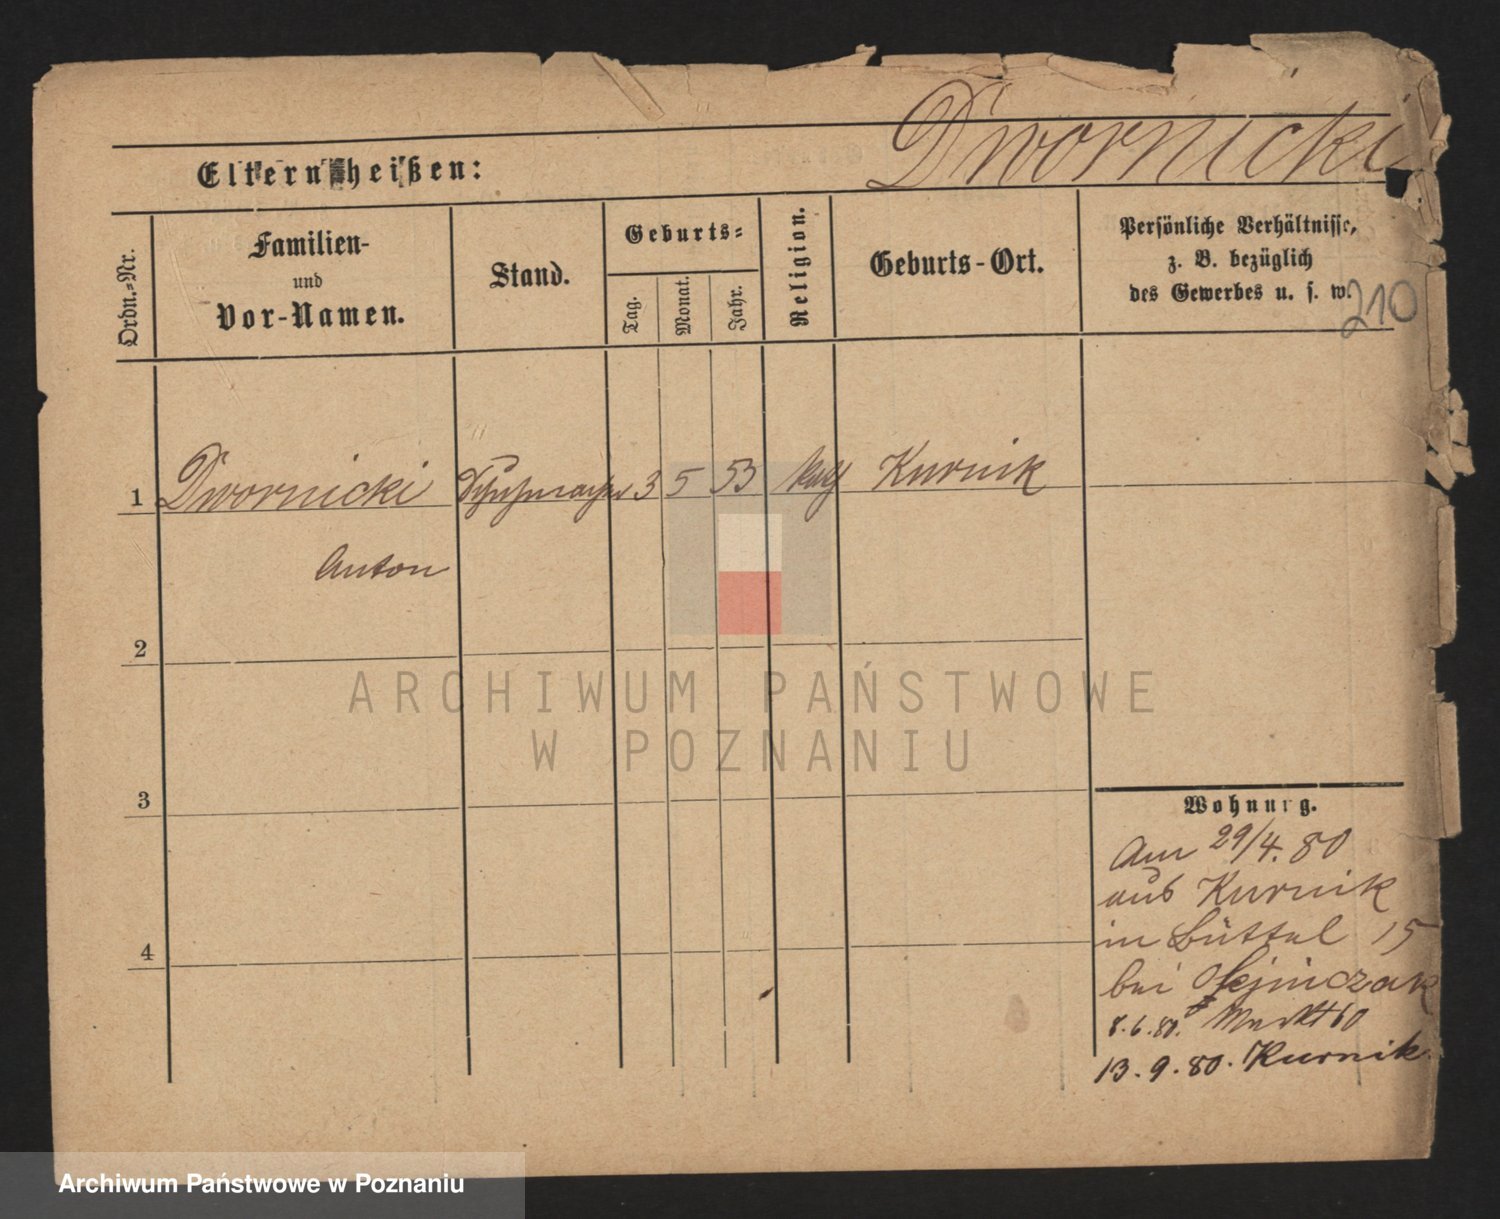 Dwornicki
Eltern heißen:
Ordn.-Nr.
Familien-
und
Vor-Namen.
Stand.
Geburts-
Tag.
Monat.
Jahr.
Religion.
Geburts-Ort.
Persönliche Verhältnisse,
z. B. bezüglich
des Gewerbes u. s. w.
210
1 Dwornicki Schuhmacher 3 5 53 kath Kurnik
Anton
2
3
4
Wohnung.
Am 29/4. 80
aus Kurnik
in Büttel 15
bei
8.6.80. Markt 60
13.9.80. Kurnik
ARCHIWUM PAŃSTWOWE
W POZNANIU
Archiwum Państwowe w Poznaniu